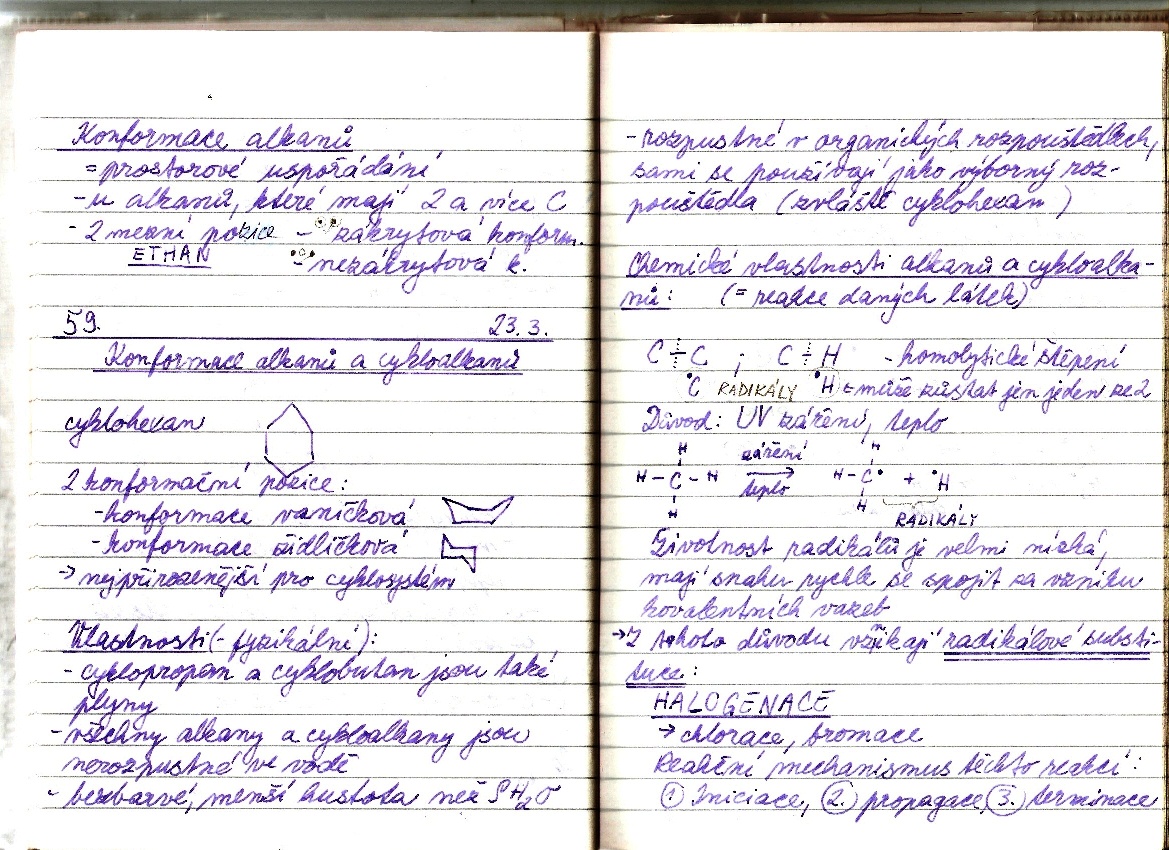 Konformace alkanů
= prostorové uspořádání
- u alkanů, které mají 2 a více C
- 2 mezní pozice - zákrytová konform.
ETHAN - nezákrytová k.
59. 23.3.
Konformace alkanů a cykloalkanů
cyklohexan
2 konformační pozice:
- konformace vaničková
- konformace židličková
→ nejpřirozenější pro cyklosystém
Vlastnosti (- fyzikální):
- cyklopropan a cyklobutan jsou také
plyny
- všechny alkany a cykloalkany jsou
nerozpustné ve vodě
- bezbarvé, menší hustota než ρH2O
- rozpustné v organických rozpouštědlech,
sami se používají jako výborný roz-
pouštědla (zvláště cyklohexan)
Chemické vlastnosti alkanů a cykloalka-
nů: (= reakce daných látek)
C C ; C H - homolytické štěpení
•C RADIKÁLY •H - může zůstat jen jeden ze 2
Důvod: UV záření, teplo
H záření H
H - C - H → H - C• + •H
H teplo H
RADIKÁLY
Životnost radikálů je velmi nízká,
mají snahu rychle se spojit za vzniku
kovalentních vazeb
→ Z tohoto důvodu vznikají radikálové substi-
tuce:
HALOGENACE
→ chlorace, bromace
Reakční mechanismus těchto reakcí:
1. Iniciace, 2. propagace, 3. terminace